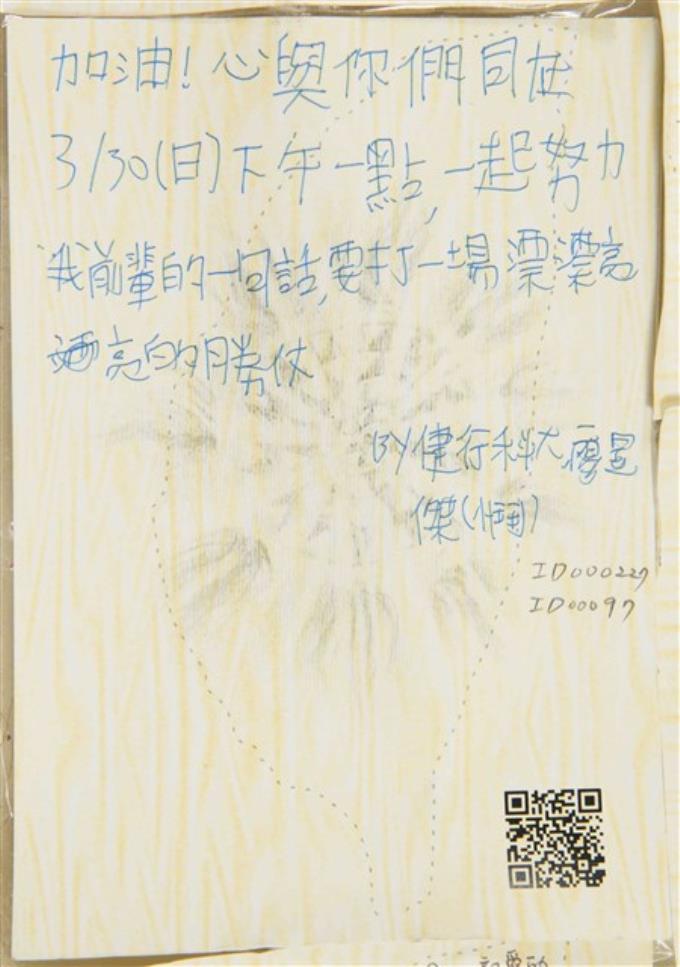 加油!心與你們同在
3/30(日)下午一點,一起努力
我前輩的一句話,要打一場漂漂亮
亮的勝仗
BY健行科大 廖昱
傑(
ID000227
ID00097